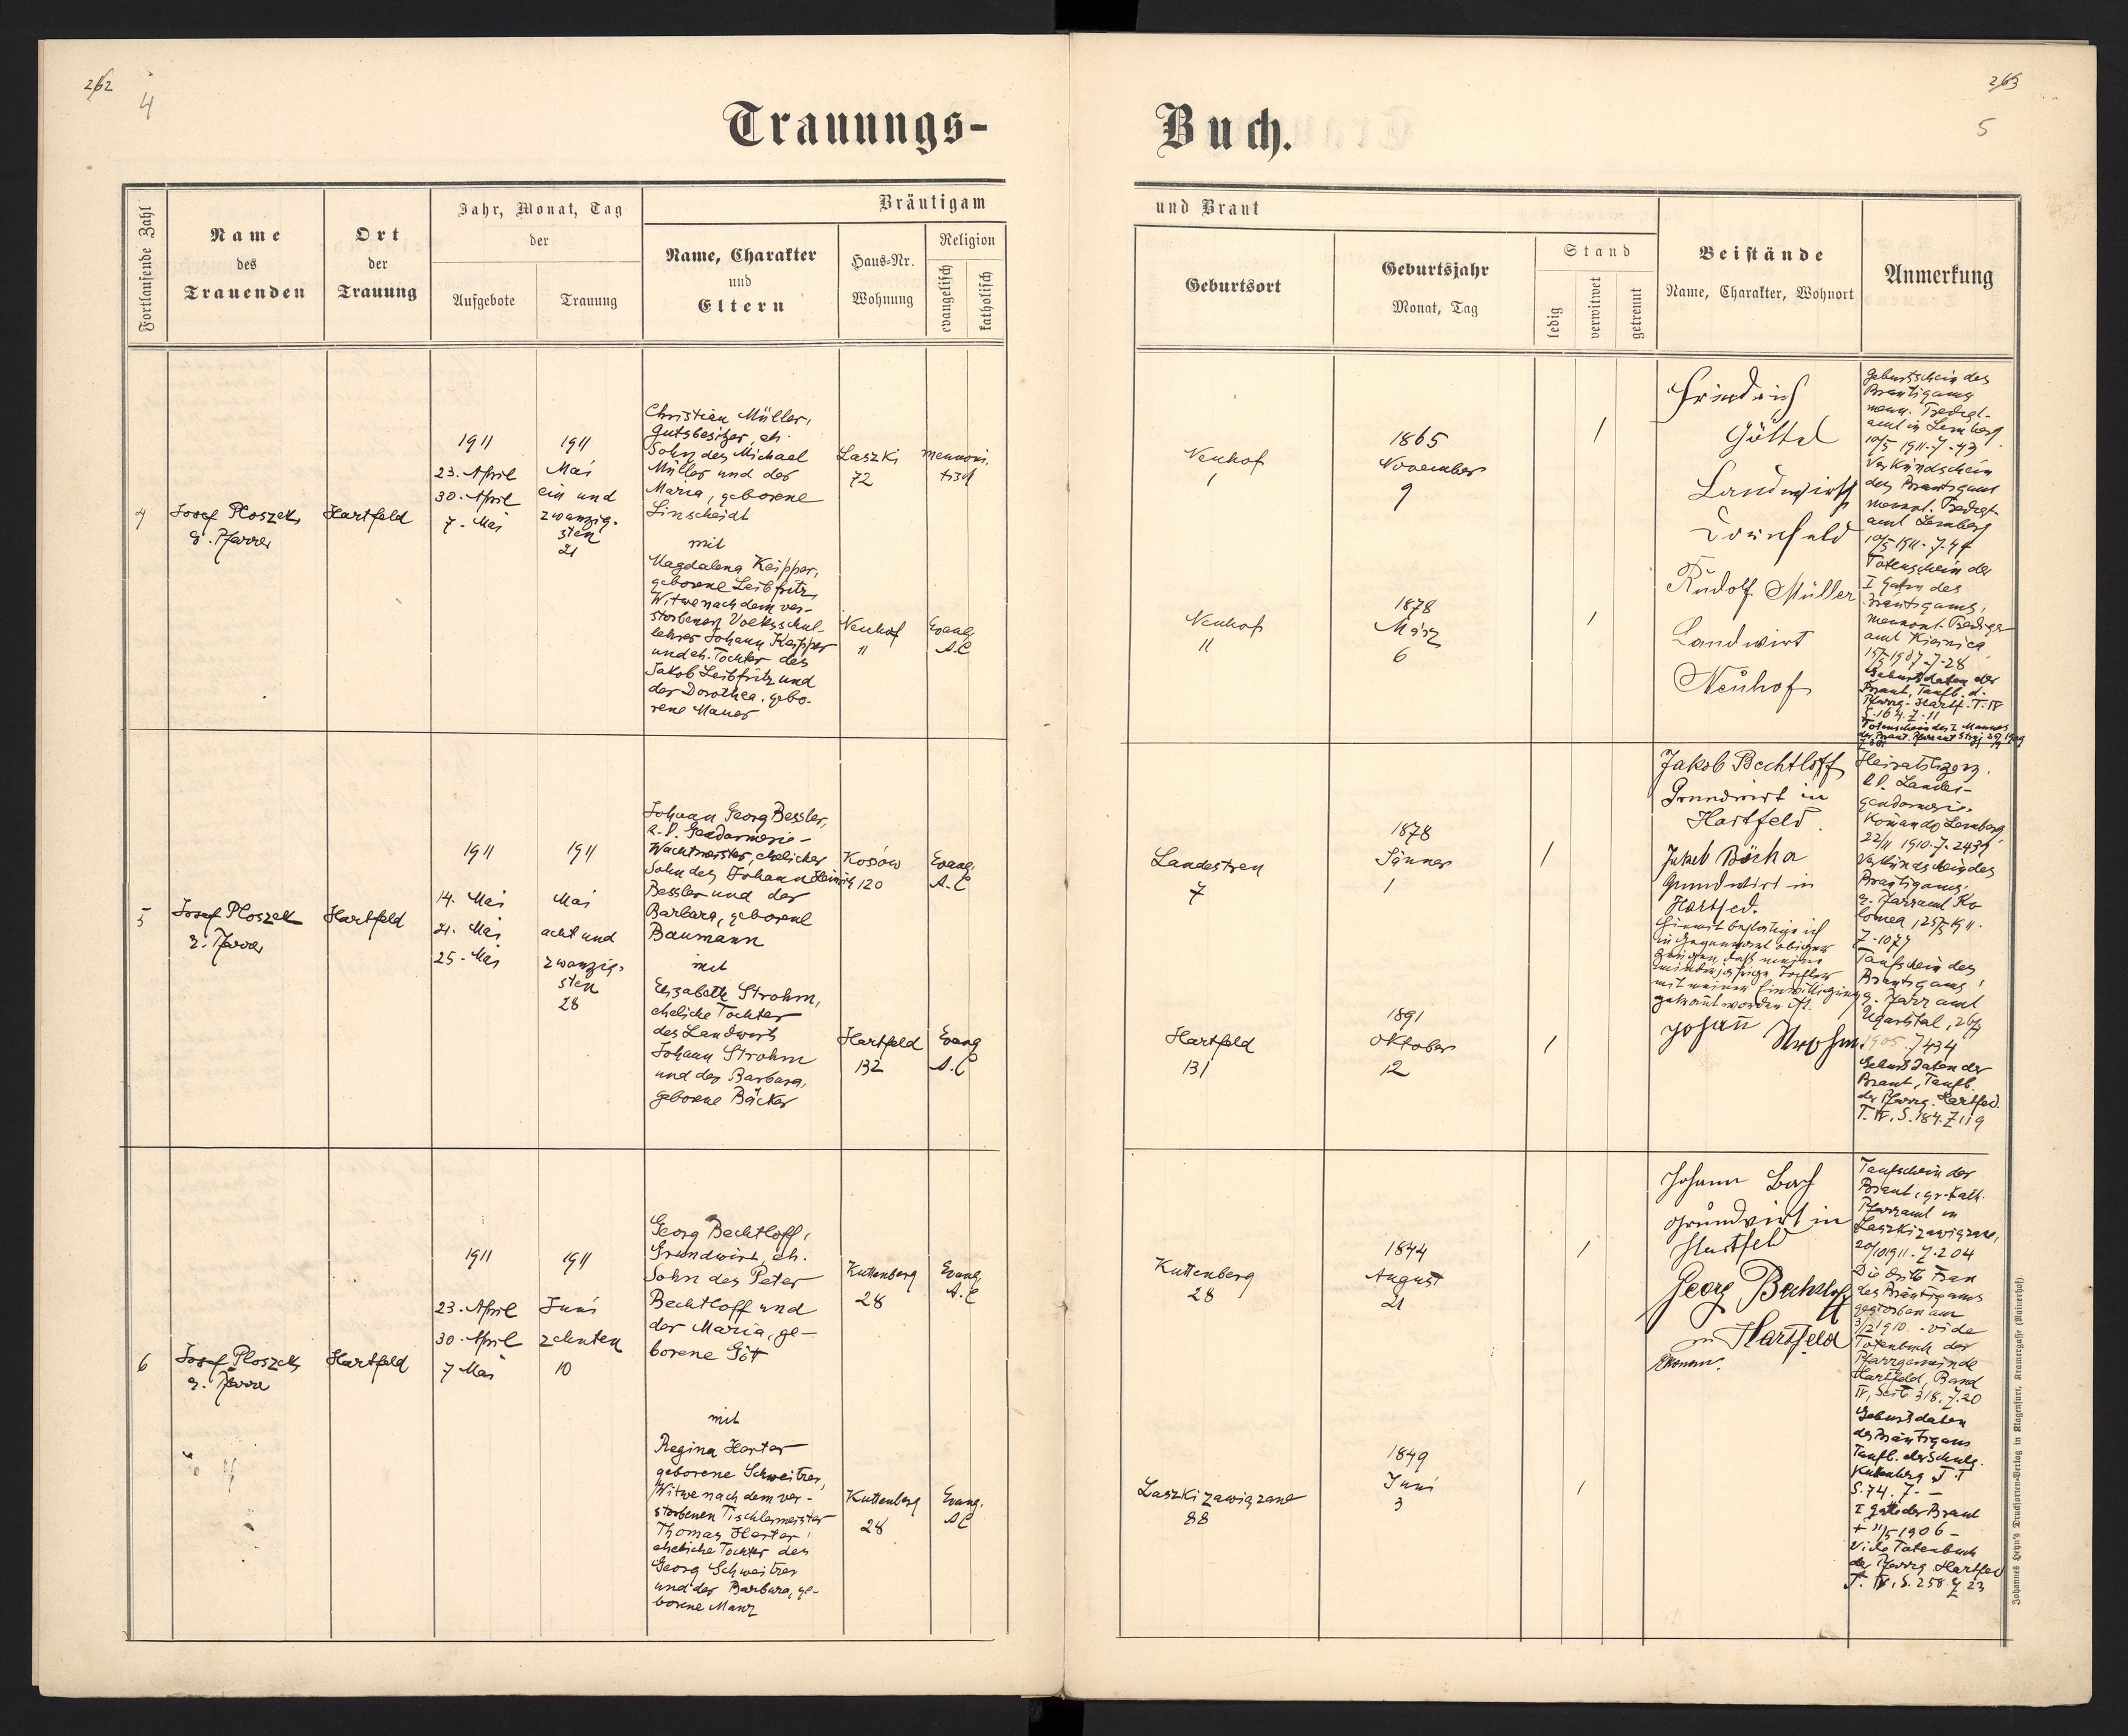 262
4
Trauungs-
Fortlaufende Zahl
Name
des
Trauenden
Ort
der
Trauung
Jahr, Monat, Tag
der
Aufgebote
Trauung
Bräutigam
Name, Charakter
und
Eltern
Haus-Nr.
Wohnung
Religion
evangelisch
katholisch
4
Josef Ploszek
e. Pfarrer
Hartfeld
1911
23. April
30. April
7. Mai
1911
Mai
ein und
zwanzig-
sten
21
Christian Müller,
Gutsbesitzer, eh.
Sohn des Michael
Müller und der
Maria, geborene
Linscheidt
mit
Magdalena Keipper,
geborene Leibfritz,
Witwe nach dem ver-
storbenen Volksschul-
lehrer Johann Keipper
und eh. Tochter des
Jakob Leibfritz und
der Dorothea, gebo-
rene Mauer
Laszki
72
mennoni-
tisch
Neuhof
11
Evang.
A.C
5
Josef Ploszek
e. Pfarrer
Hartfeld
1911
14. Mai
21. Mai
25. Mai
1911
Mai
acht und
zwanzig-
sten
28
Johann Georg Bessler,
k. k. Gendarmerie-
Wachtmeister, ehelicher
Sohn des Johann Heinrich
Bessler und der
Barbara, geborene
Baumann
mit
Elisabeth Strohm,
eheliche Tochter
des Landwirts
Johann Strohm
und der Barbara,
geborene Bäcker
Kosów
120
Evang.
A.C
Hartfeld
132
Evang
A.C
6
Josef Ploszek
e. Pfarrer
Hartfeld
1911
23. April
30. April
7 Mai
1911
Juni
zehnten
10
Georg Bechtloff,
Grundwirt, eh.
Sohn des Peter
Bechtloff und
der Maria, ge-
borene Gött
mit
Regina Harter
geborene Schweitzer,
Witwe nach dem ver-
storbenen Tischlermeister
Thomas Harter,
eheliche Tochter des
Georg Schweitzer
und der Barbara, ge-
borene Manz
Kuttenberg
28
Evang.
A.C
Kuttenberg
28
Evang.
AC
263
5
Buch.
und Braut
Geburtsort
Geburtsjahr
Monat, Tag
Stand
ledig
verwitwet
getrennt
Beistände
Name, Charakter, Wohnort
Anmerkung
Neuhof
1
1865
November
9
Neuhof
11
1878
März
6
Friedrich
Göttel
Landwirth
Dornfeld
Rudolf Müller
Landwirt
Neuhof
Geburtsschein des
Bräutigams
menn. Predigt-
amt in Lemberg
10/5 1911. Z. 43
Verkündschein
des Bräutigams
mennt. Predigt-
amt Lemberg
10/5 1911. Z. 44
Totenschein der
I Gattin des
Bräutigams,
mennont. Prediger
amt Kiernica
15/5 1907. Z. 28
Geburtsdaten der
Braut, Taufb. d.
Pfarrg. Hartf. T. IV
S. 164. Z. 11
Landestreu
7
1878
Jänner
1
Hartfeld
131
1891
Oktober
12
Jakob Bechtloff
Grundwirt in
Hartfeld.
Jakob Bäcker
Grundwirt in
Hartfed.
Hiermit bestätige ich
in Gegenwart obiger
Zeugen, daß meine
minderjährige Tochter
mit meiner Einwilligung
getraut worden ist.
Johann Strohm
k. k. Landes-
gendarmerie-
Komando Lemberg
Verkündschein des
Bräutigams,
e. Pfarramt Ko-
lomea, 25/5 1911.
Z. 1077
Taufschein des
Bräutigams,
e. Pfarramt
Ugartstal, 26/7
1905. Z 434
Geburtsdaten der
Braut, Taufb.
der Pfarrg. Hartfed.
T. IV, S. 184. Z 119
Kuttenberg
28
1844
August
21
Laszki zawiązane
88
1849
Juni
3
Johann Bach
Grundwirt in
Hartfeld
Georg Bechtloff
in Hartfeld
Taufschein der
Braut, gr. kath.
Pfarramt in
Laszki zawiązane,
Z. 204
Die dritte Frau
des Bräutigams
gestorben am
3/12 1910. - vide
Totenbuch der
Pfarrgemeinde
Hartfeld, Band
IV, Seite 318. Z. 20
Geburtsdaten
des Bräutigams
Taufb. der Schulg.
Kuttenberg T. I
S. 74. Z. -
I Gatte der Braut
+ 11/5 1906 -
Vide Totenbuch
der Pfarrg. Hartfed
T. IV, S. 258. Z 23
Johannes Heyn's Drucksorten-Verlag in Klagenfurt, Kramergasse (Rainerhof).